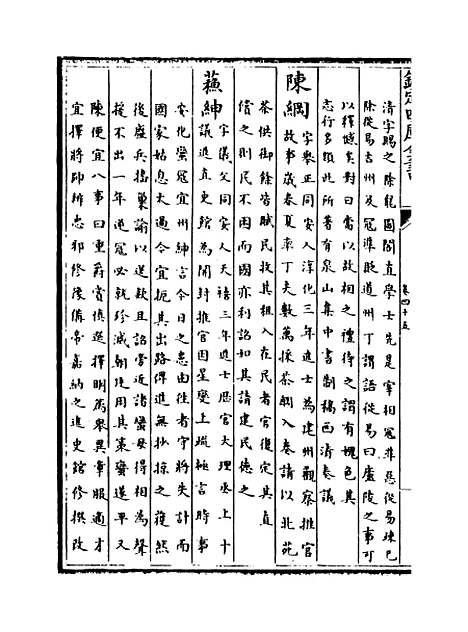 欽定四庫全書
卷四十五
清字賜之除龍圖閣直學士先是宰相冠準惡從易疎己
除從易吉州及冠準貶道州丁謂語從易曰廬陵之事可
以釋憾矣對曰當以故相之禮待之謂有愧色其
志行多類此所著有泉山集中書制稿西清奏議
陳綱字舉正同安人淳化三年進士為建州觀察推官
故事歲春夏率丁夫數萬採茶綱入奏請以北苑
茶供御餘皆賦民收其租入在民者官復定其直
償之則民不困而國亦利詔如其請建民德之
蘓紳字儀父同安人天禧三年進士歷官大理丞上十
議進直史館為開封推官因星變上疏極言時事
安化蠻冦宜州紳言今日之患由往者守將失計而
國家姑息太過今宜扼其出路俾進無抄掠之獲然
後廢兵搗巢諭以送欵且詔當近諸蠻毋得相為聲
援不出一年逆冦必就殄滅朝廷用其策蠻遂平又
陳便宜八事曰重爵賞慎選擇明薦舉異章服適才
宜擇將帥辨忠邪修豫備帝嘉納之進史館修撰改